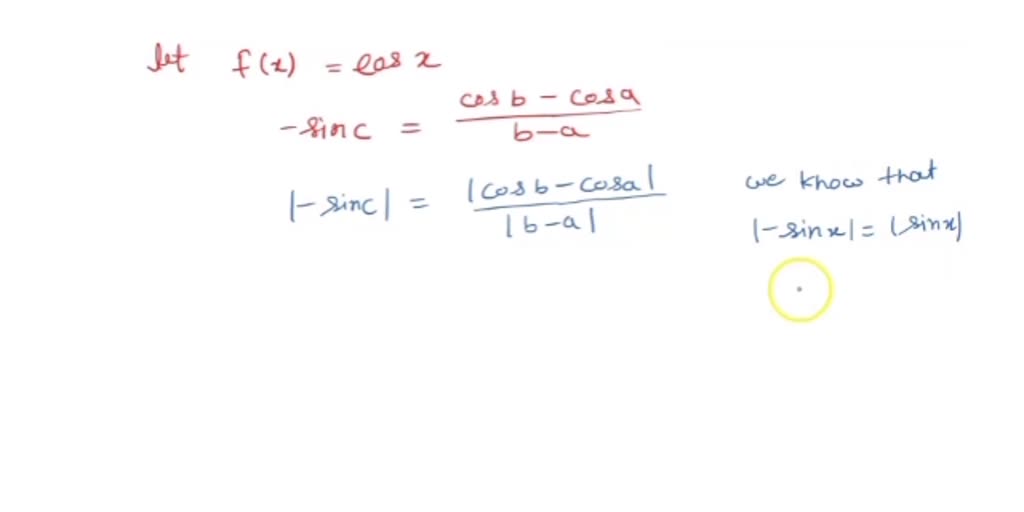 let f(x) = cos x
-sin c = cos b - cos a / b-a
|-sin c| = |cos b - cos a| / |b-a|
we know that
|-sin x| = |sin x|